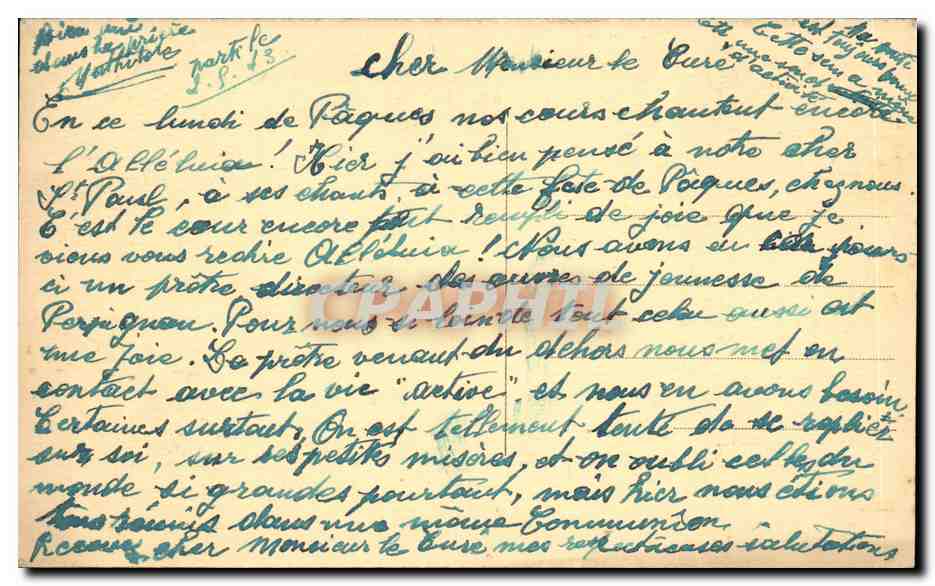 Bien unie
dans la prière
Mathilde
partie
2.5.53
est toujours bonne
Cher Monsieur le Curé
En ce lundi de Pâques nos cœurs chantent encore
l'Alléluia! Hier j'ai bien pensé à notre cher
St Paul, à ses chants à cette fête de Pâques, chez nous.
C'est le cœur encore tout rempli de joie que je
viens vous redire Alléluia! Nous avons eu ces jours-
ci un prêtre directeur des œuvres de jeunesse de
Perpignan. Pour nous si loin de tout cela aussi est
une joie. Le prêtre venant du dehors nous met en
contact avec la vie "active", et nous en avons besoin
Certaines surtout. On est tellement tenté de se replier
sur soi, sur ses petites misères, et on oubli celles du
monde si grandes pourtant, mais hier nous étions
tous réunis dans une même Communion
Recevez cher Monsieur le Curé mes respectueuses salutations
CPAPHIL